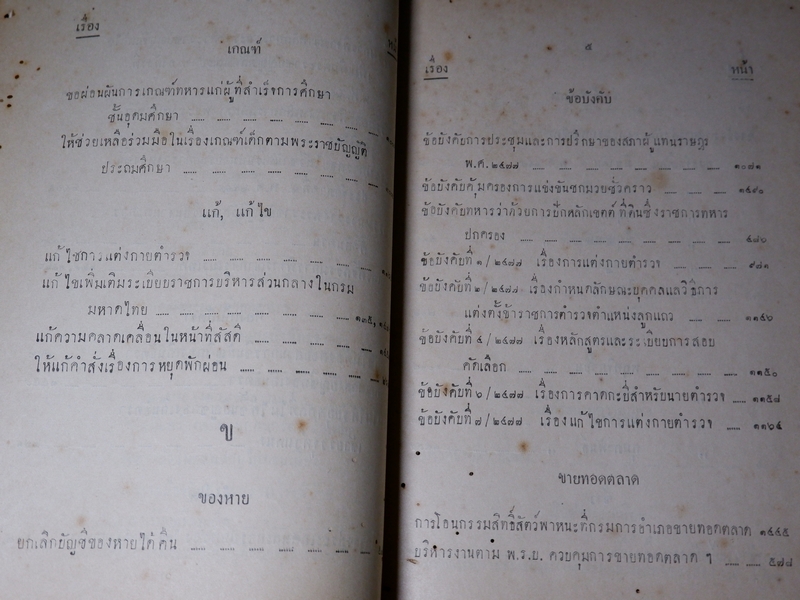 เรื่อง
เกณฑ์
ขอผ่อนผันการเกณฑ์ทหารแก่ผู้ที่สำเร็จการศึกษา
ชั้นอุดมศึกษา
ให้ช่วยเหลือร่วมมือในเรื่องเกณฑ์เด็กตามพระราชบัญญัติ
ประถมศึกษา
แก้, แก้ไข
แก้ไขการแต่งกายตำรวจ
แก้ไขเพิ่มเติมระเบียบราชการบริหารส่วนกลางในกรม
มหาดไทย ๑๓๕,
แก้ความคลาดเคลื่อนในหน้าที่สัสดี
ให้แก้คำสั่งเรื่องการหยุดพักผ่อน
ข
ของหาย
ยกเลิกบัญชีของหายได้คืน
๕
เรื่อง หน้า
ข้อบังคับ
ข้อบังคับการประชุมและการปรึกษาของสภาผู้แทนราษฎร
พ.ศ. ๒๔๗๗ ๑๐๘๑
ข้อบังคับคุ้มครองการแข่งขันชกมวยชั่วคราว ๑๕๙๐
ข้อบังคับทหารว่าด้วยการปักหลักเขตต์ ที่ดินซึ่งราชการทหาร
ปกครอง ๔๘๖
ข้อบังคับที่ ๑/๒๔๗๗ เรื่องการแต่งกายตำรวจ ๙๘๑
ข้อบังคับที่ ๒/๒๔๗๗ เรื่องกำหนดลักษณะบุคคลและวิธีการ
แต่งตั้งข้าราชการตำรวจตำแหน่งลูกแถว ๑๑๔๖
ข้อบังคับที่ ๔/๒๔๗๗ เรื่องหลักสูตรและระเบียบการสอบ
คัดเลือก ๑๑๕๐
ข้อบังคับที่ ๖/๒๔๗๗ เรื่องการคาดกะบี่สำหรับนายตำรวจ ๑๑๕๘
ข้อบังคับที่ ๗/๒๔๗๗ เรื่องแก้ไขการแต่งกายตำรวจ ๑๑๖๔
ขายทอดตลาด
การโอนกรรมสิทธิ์สัตว์พาหนะที่กรมการอำเภอขายทอดตลาด ๑๔๔๕
บริหารงานตาม พ.ร.บ. ควบคุมการขายทอดตลาด ฯ ๕๗๘